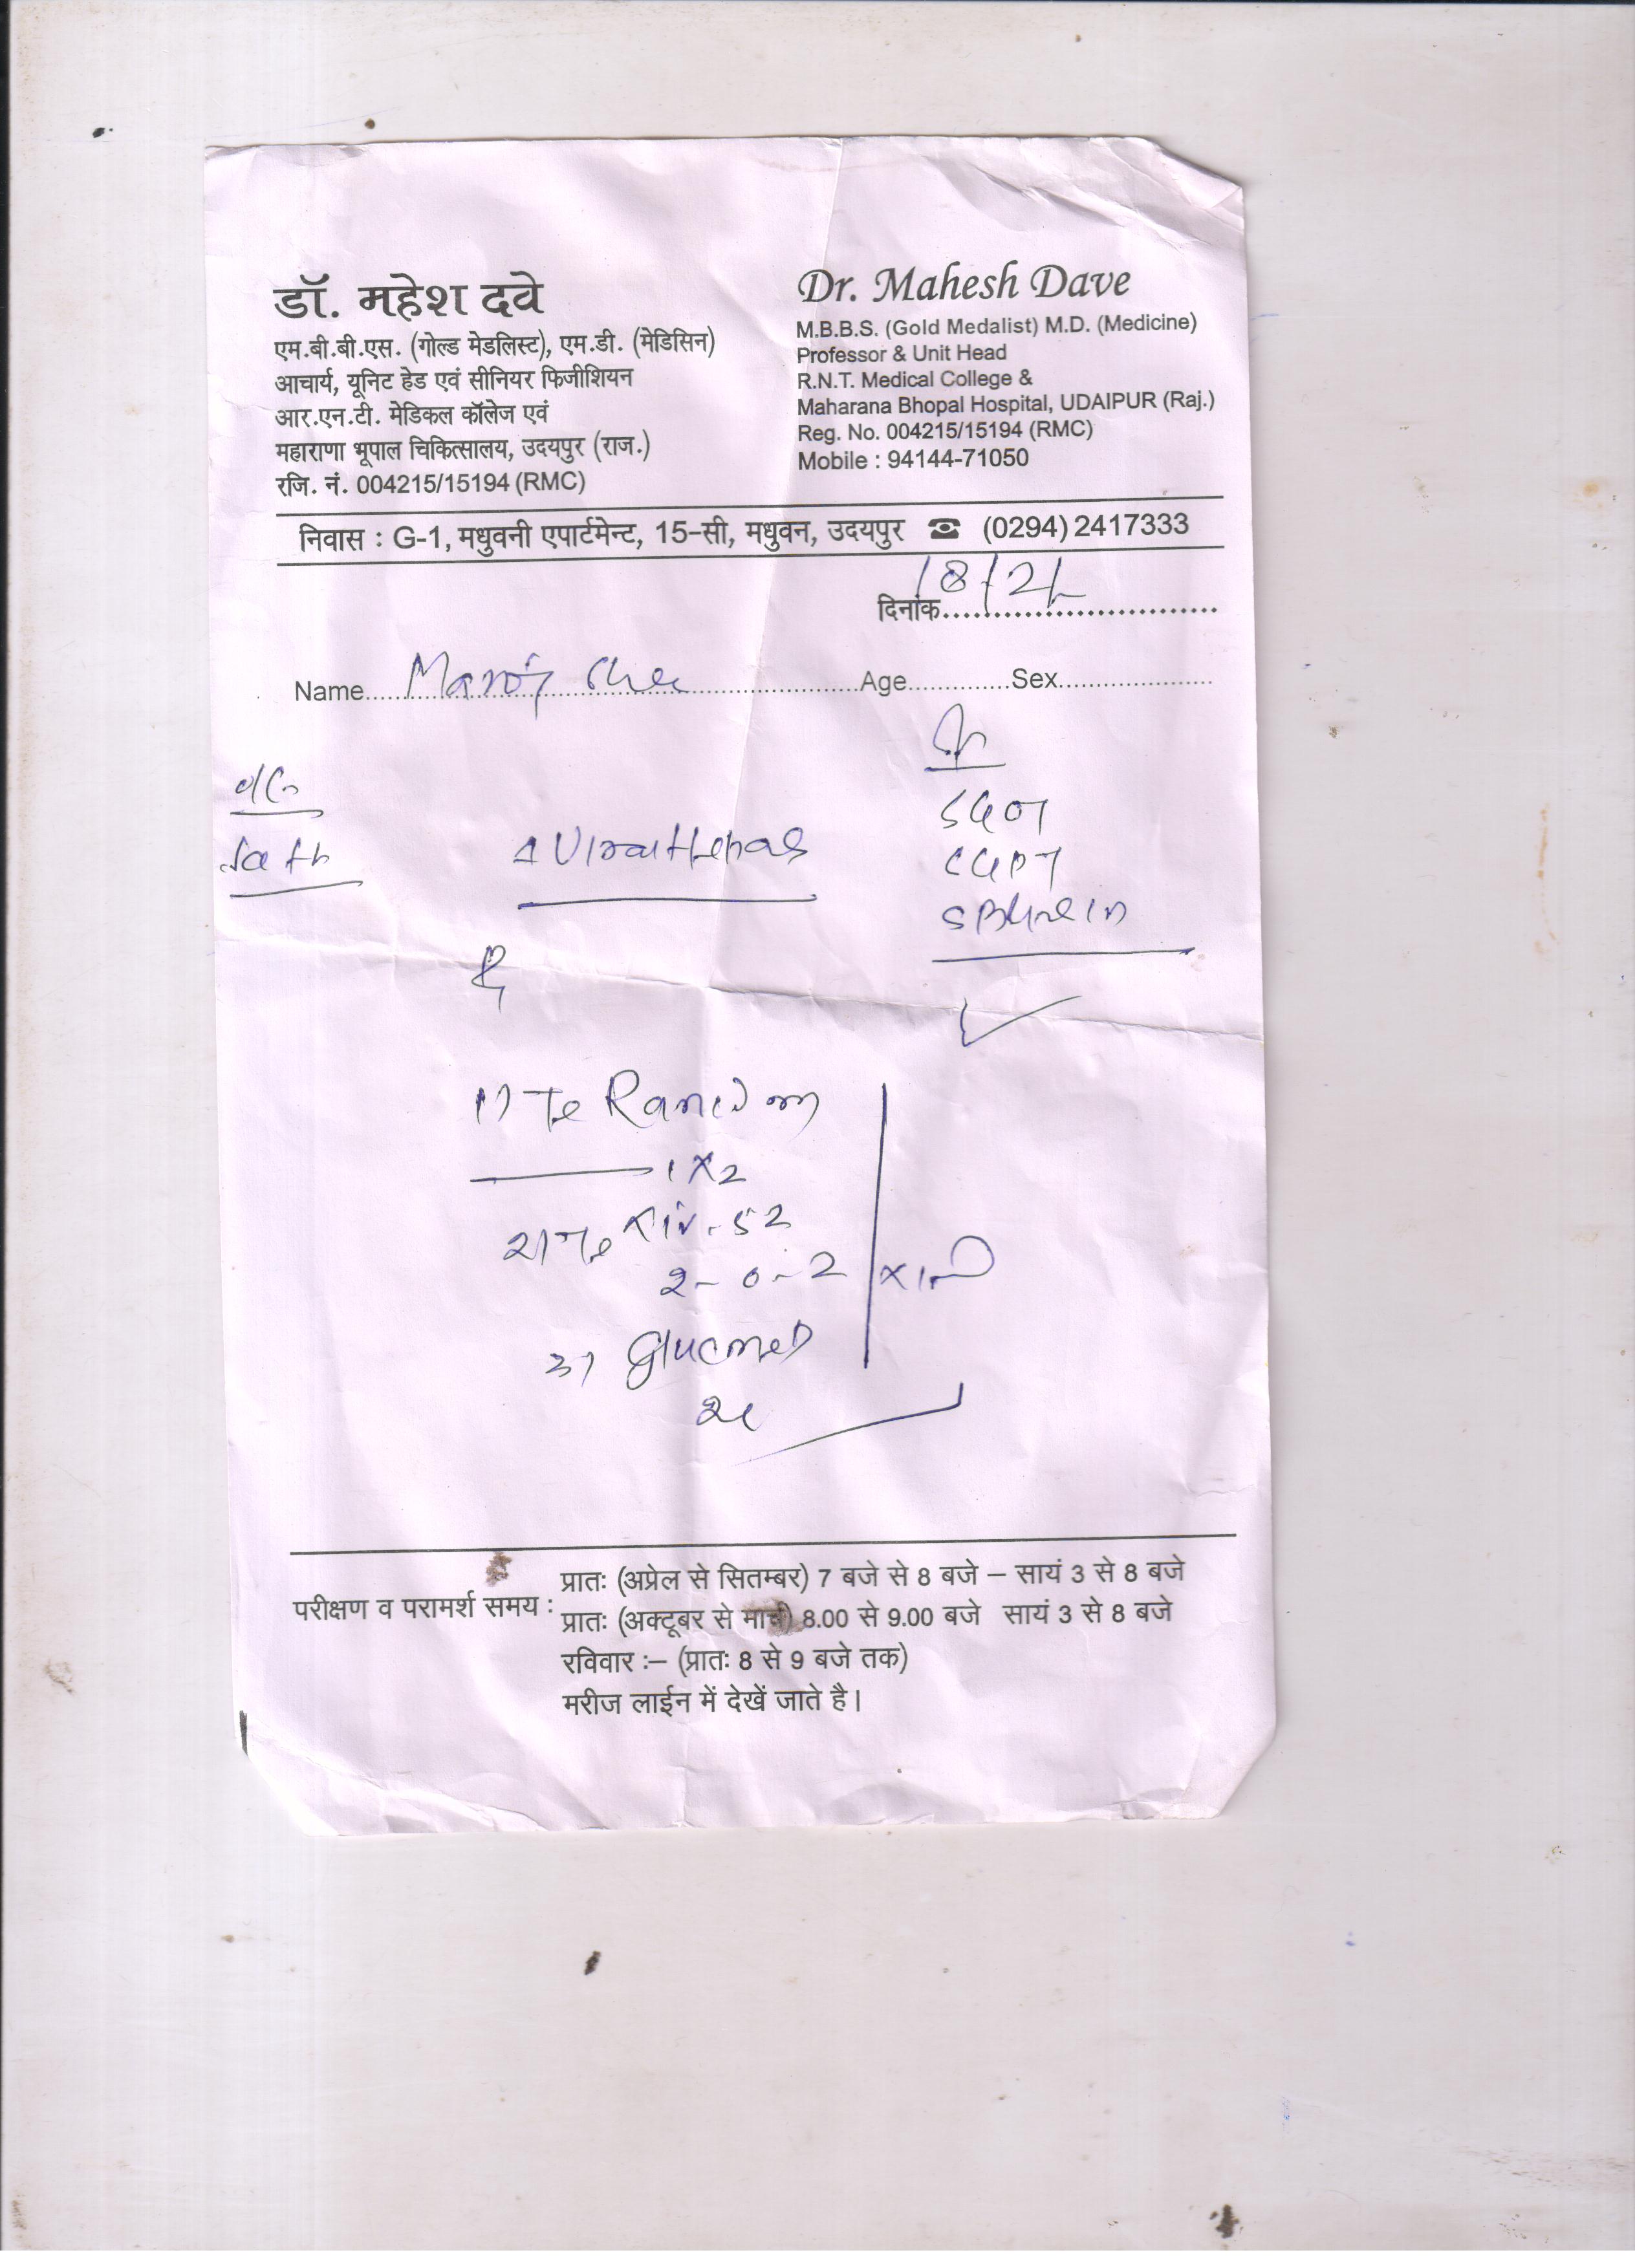 डॉ. महेश दवे
एम.बी.बी.एस. (गोल्ड मेडलिस्ट), एम.डी. (मेडिसिन)
आचार्य, यूनिट हेड एवं सीनियर फिजीशियन
आर.एन.टी. मेडिकल कॉलेज एवं
महाराणा भूपाल चिकित्सालय, उदयपुर (राज.)
रजि. नं. 004215/15194 (RMC)
Dr. Mahesh Dave
M.B.B.S. (Gold Medalist) M.D. (Medicine)
Professor & Unit Head
R.N.T. Medical College &
Maharana Bhopal Hospital, UDAIPUR (Raj.)
Reg. No. 004215/15194 (RMC)
Mobile : 94144-71050
निवास : G-1, मधुवनी एपार्टमेन्ट, 15-सी, मधुवन, उदयपुर ☎ (0294) 2417333
दिनांक 18/2/
Name Manoj Age Sex
SGOT
SGPT
1)
1 X 2
2)
2-0-2
3)
परीक्षण व परामर्श समय :
प्रातः (अप्रेल से सितम्बर) 7 बजे से 8 बजे – सायं 3 से 8 बजे
प्रातः (अक्टूबर से मार्च) 8.00 से 9.00 बजे सायं 3 से 8 बजे
रविवार :– (प्रातः 8 से 9 बजे तक)
मरीज लाईन में देखें जाते है।